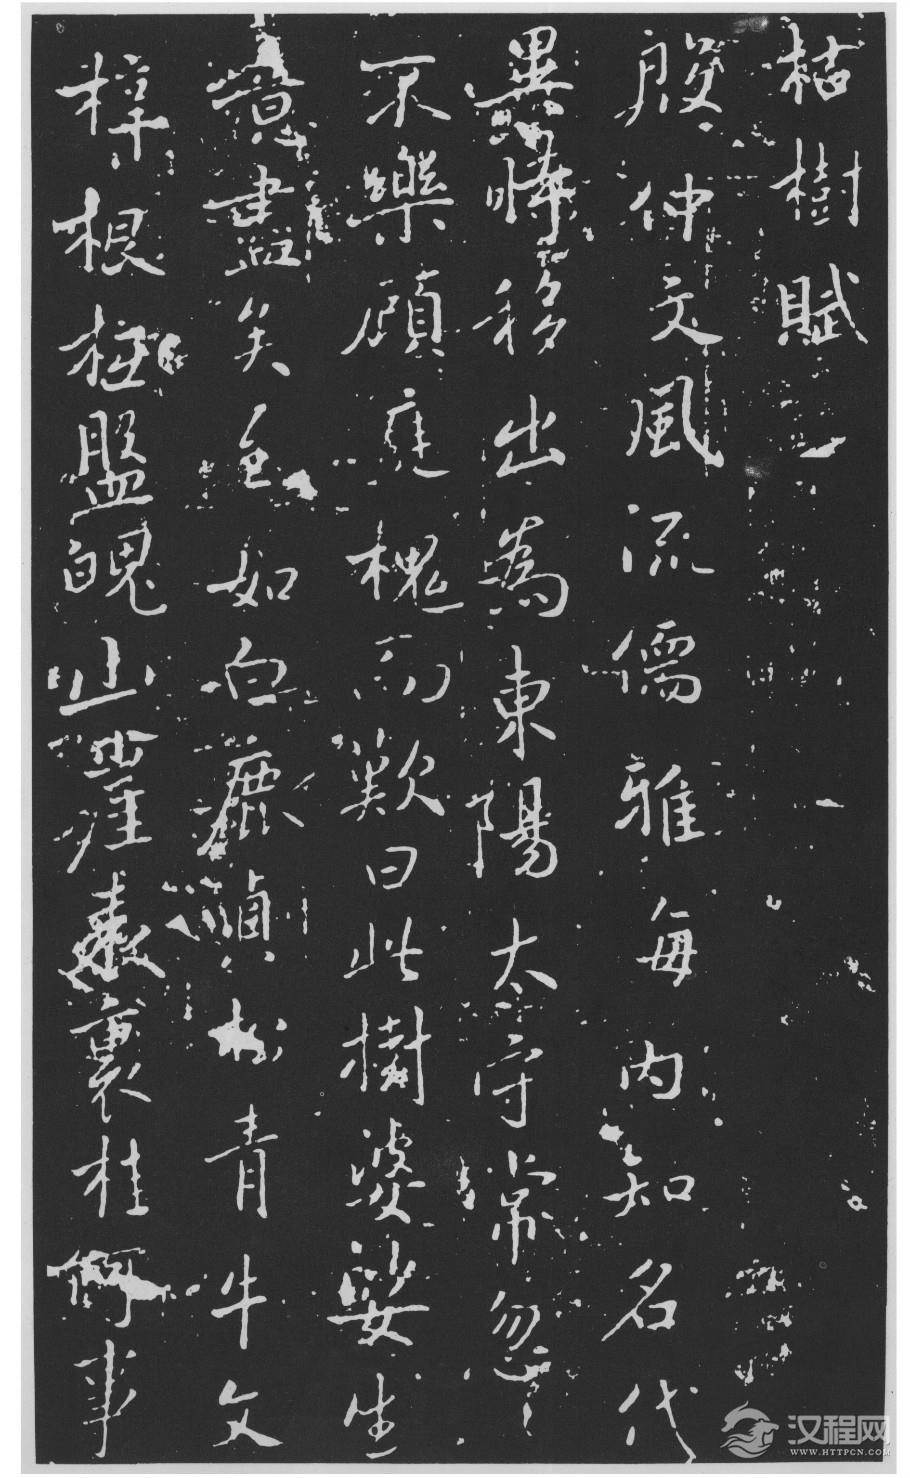 枯樹賦
殷仲文風流儒雅海內知名代
異時移出為東陽太守常忽〻
不樂顧庭槐而歎曰此樹婆娑生
意盡矣至如白鹿貞松青牛文
梓根柢盤魄山崖表裏桂何事
汉程网
WWW.HTTPCN.COM